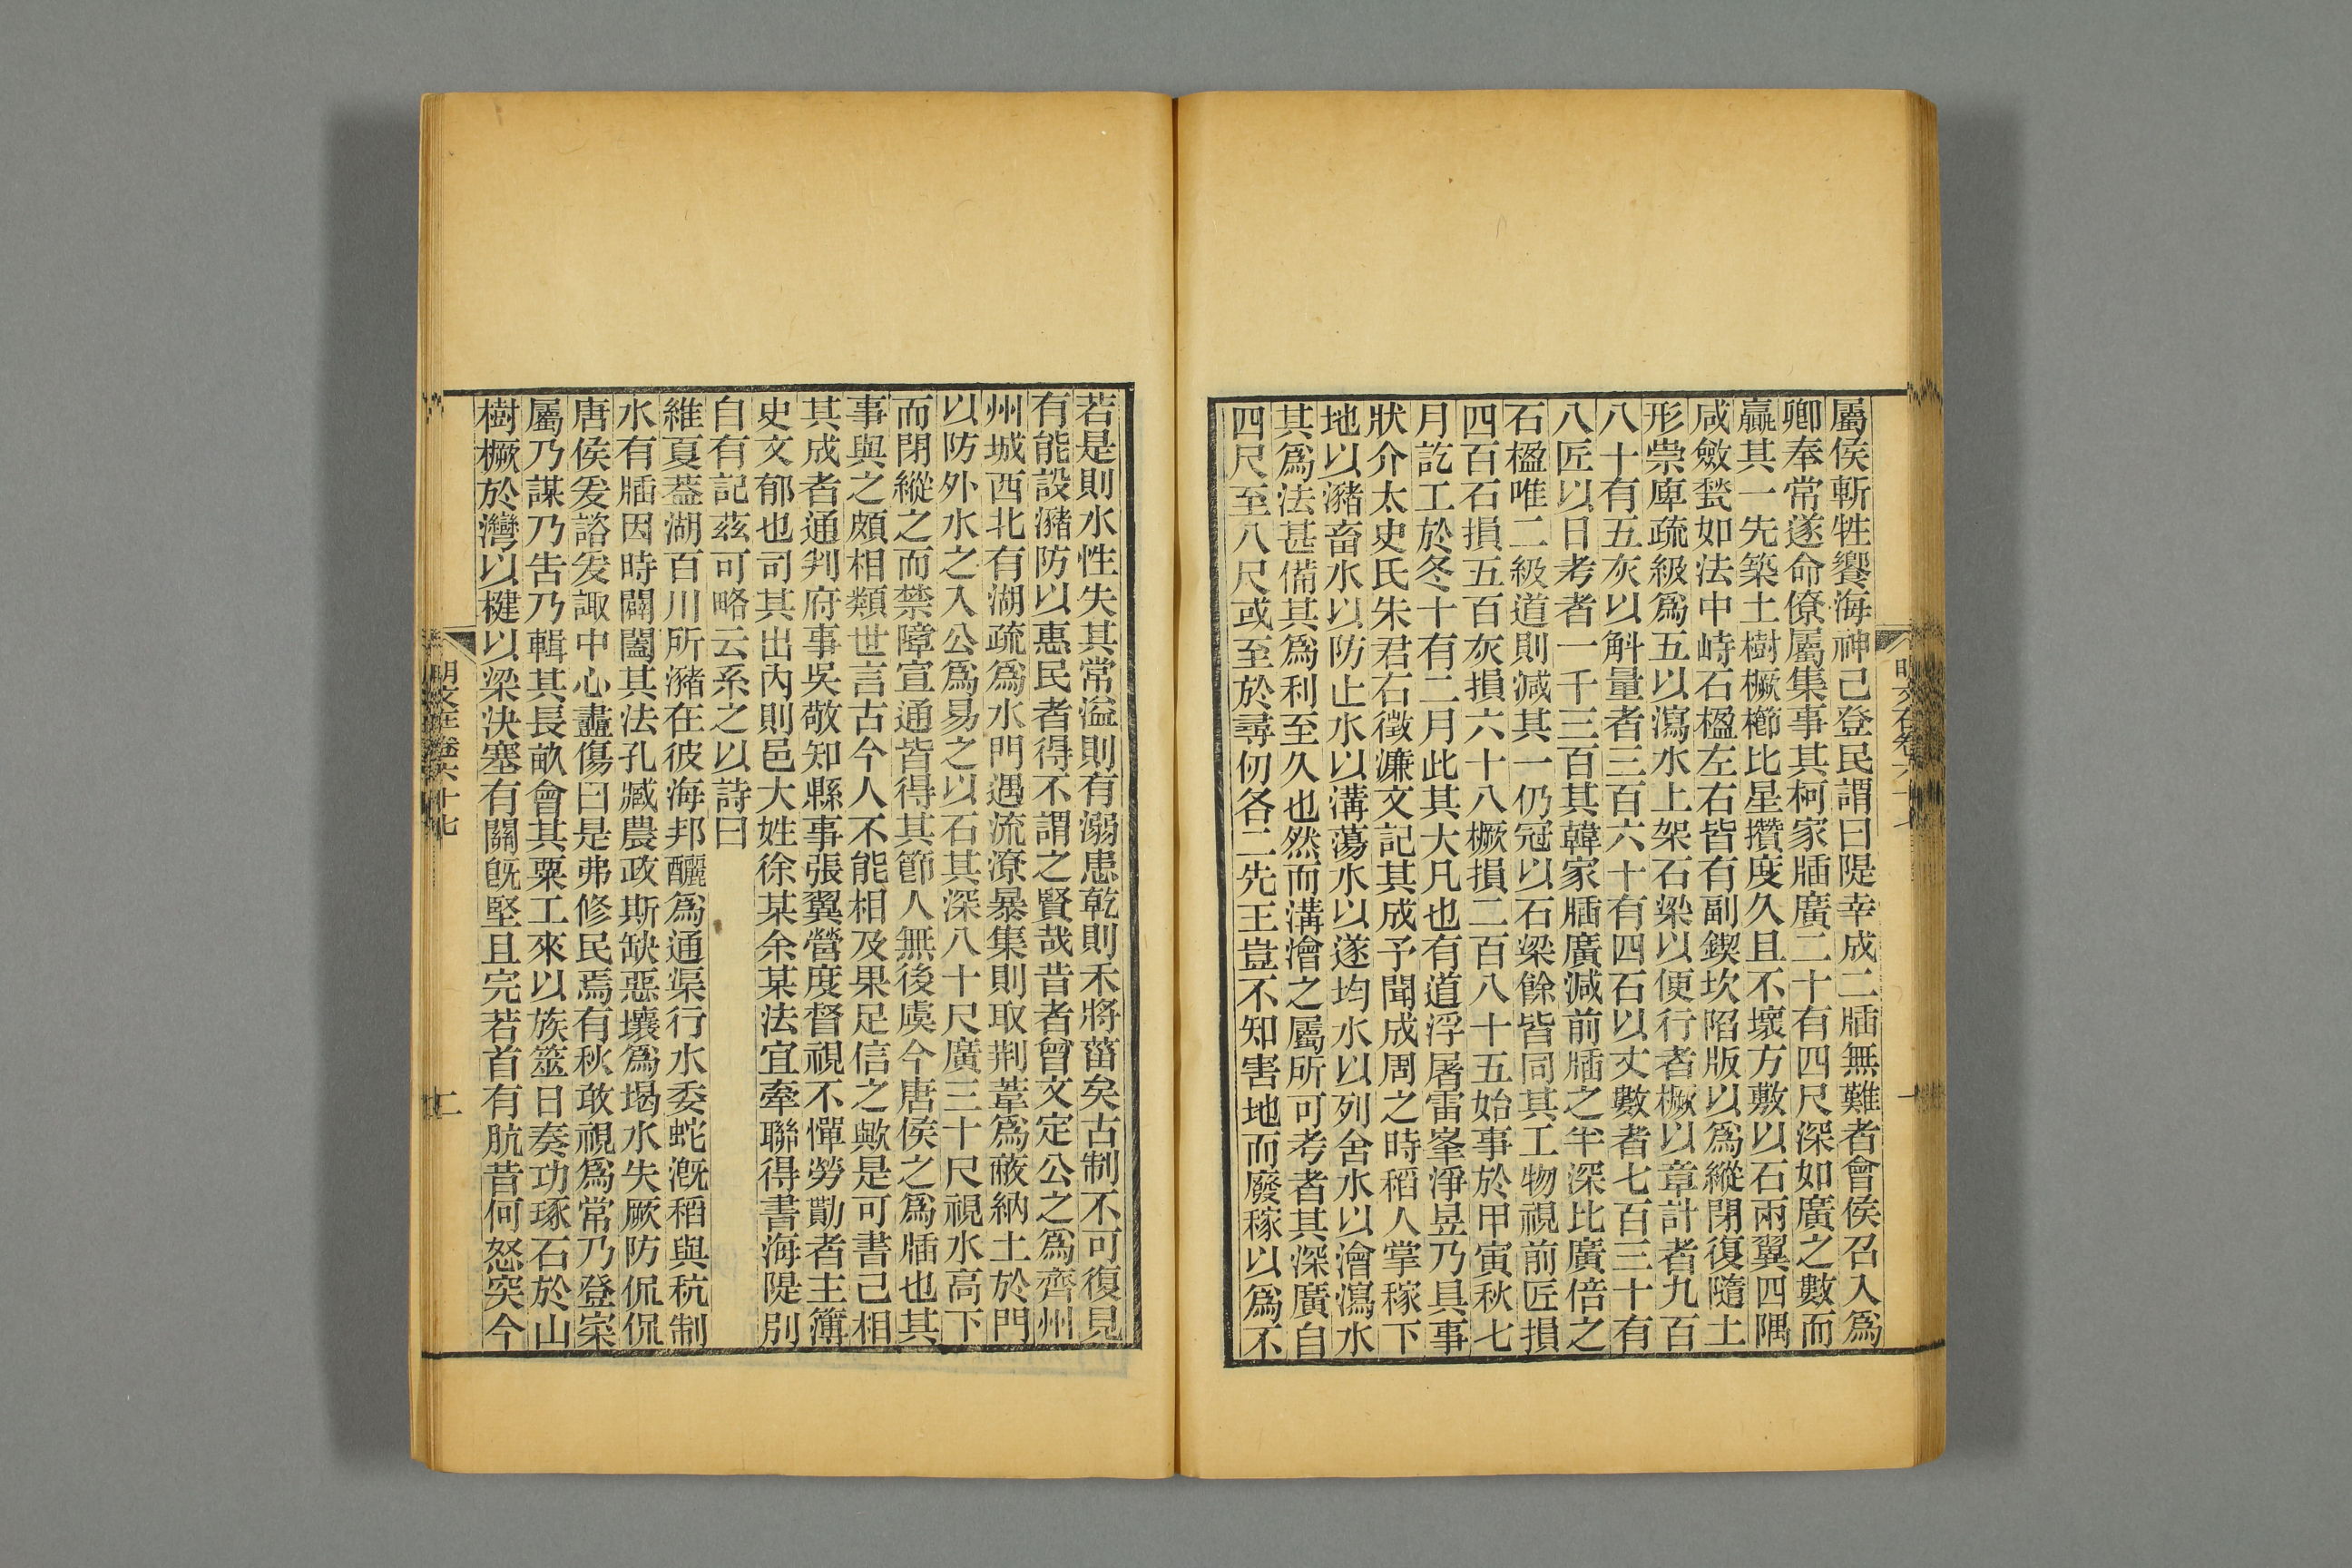 屬侯斬牲饗海神己登民謂曰隄幸成二牐無難者會侯召入爲
卿奉常遂命僚屬集事其柯家牐廣二十有四尺深如廣之數而
贏其一先築土樹橛櫛比星攢度久且不壞方敷以石兩翼四隅
咸斂甃如法中峙石楹左右皆有副鍥坎陷版以爲縱閉復隨土
形崇庳疏級爲五以瀉水上架石梁以便行者橛以章計者九百
八十有五灰以斛量者三百六十有四石以丈數者七百三十有
八匠以日考者一千三百其韓家牐廣減前牐之半深比廣倍之
石楹唯二級道則減其一仍冠以石梁餘皆同其工物視前匠損
四百石損五百灰損六十八橛損二百八十五始事於甲寅秋七
月訖工於冬十有二月此其大凡也有道浮屠雷峯淨昱乃具事
狀介太史氏朱君右徵濂文記其成予聞成周之時稻人掌稼下
地以瀦畜水以防止水以溝蕩水以遂均水以列舍水以澮瀉水
其爲法甚備其爲利至久也然而溝澮之屬所可考者其深廣自
四尺至八尺或至於尋仞各二先王豈不知害地而廢稼以爲不
若是則水性失其常溢則有溺患乾則禾將菑矣古制不可復見
有能設瀦防以惠民者得不謂之賢哉昔者曾文定公之爲齊州
州城西北有湖疏爲水門遇流潦暴集則取荆葦爲蔽納土於門
以防外水之入公爲易之以石其深八十尺廣三十尺視水高下
而閉縱之而禁障宣通皆得其節人無後虞今唐侯之爲牐也其
事與之頗相類世言古今人不能相及果足信之歟是可書己相
其成者通判府事吳敬知縣事張翼營度督視不憚勞勩者主簿
史文郁也司其出內則邑大姓徐某余某法宜牽聯得書海隄別
自有記茲可略云系之以詩曰
維夏葢湖百川所瀦在彼海邦釃爲通渠行水委蛇溉稻與秔制
水有牐因時闢闔其法孔臧農政斯缺惡壤爲堨水失厥防侃侃
唐侯爰諮爰諏中心盡傷曰是弗修民焉有秋敢視爲常乃登寀
屬乃謀乃告乃輯其長畝會其粟工來以族筮日奏功琢石於山
樹橛於灣以楗以梁決塞有關旣堅且完若首有肮昔何怒突今
明文在卷六十七
二